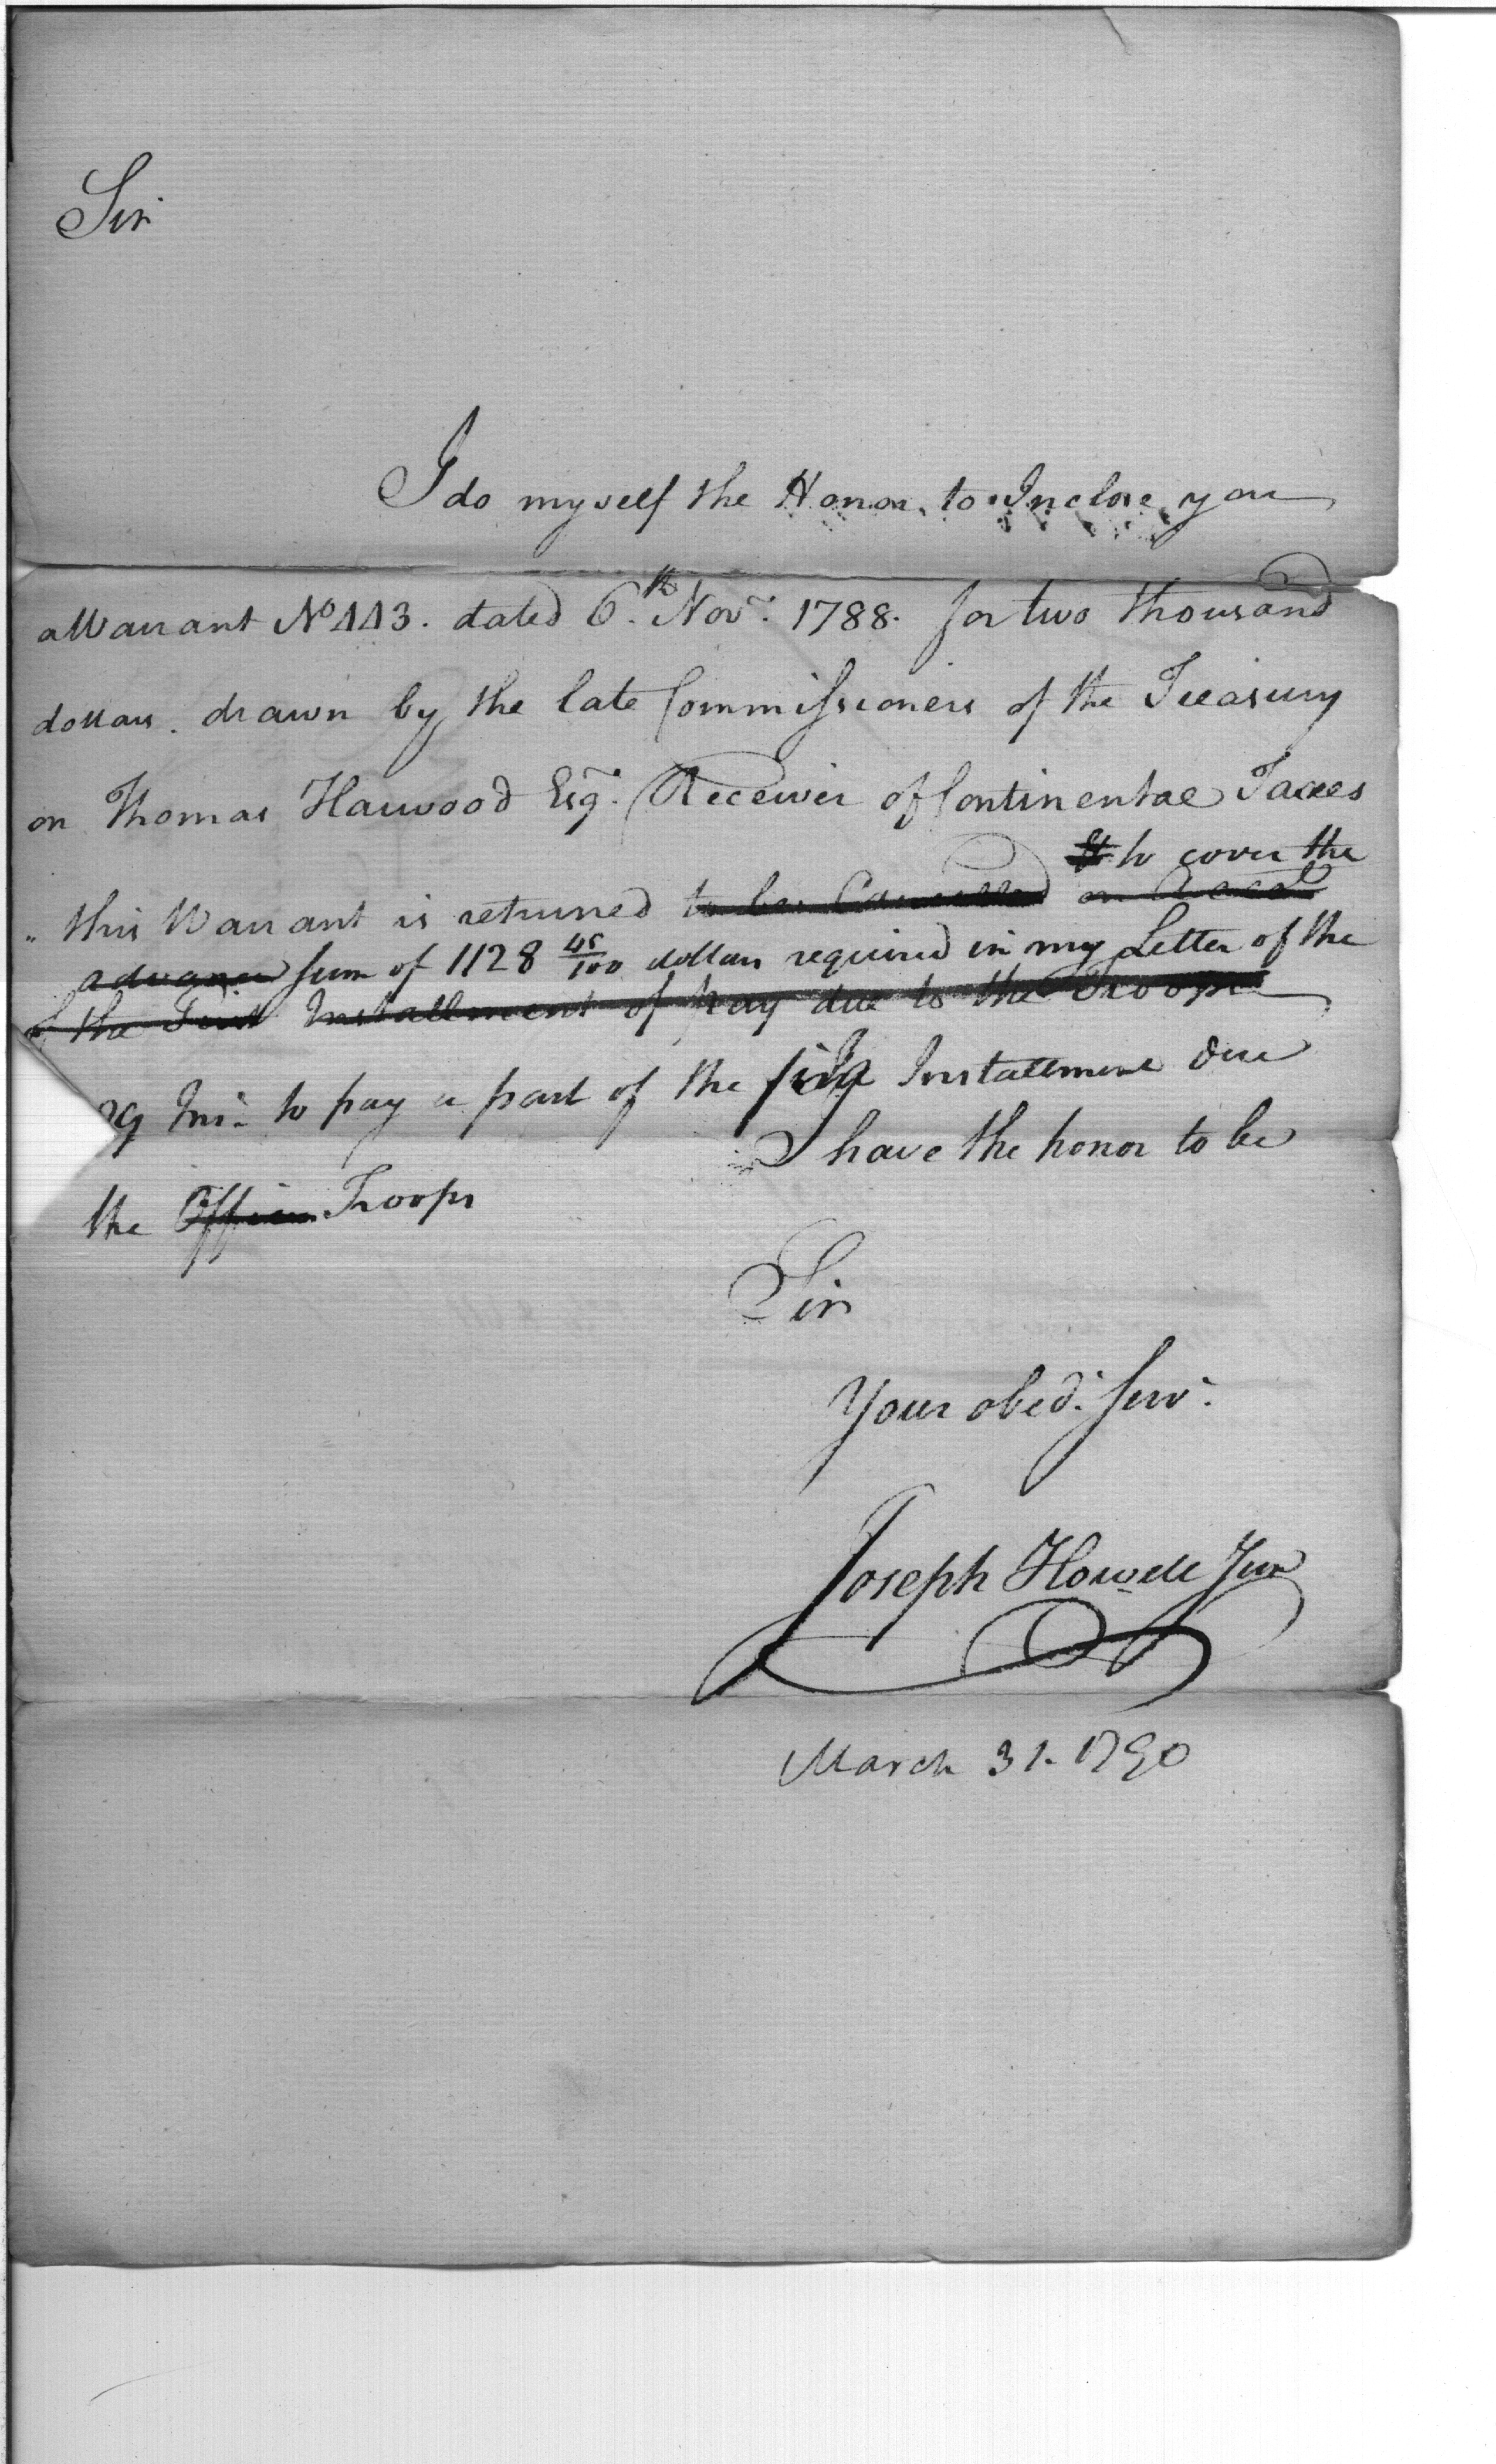 Sir
I do myself the Honor to Inclose you
a Warrant No 443. dated 6th Novr. 1788. for two thousand
dollars. drawn by the late Commissioners of the Treasury
on Thomas Harwood Esqr. Receiver of Continental Taxes
to cover the
this Warrant is returned to be Cancelled on Acct
advance sum of 1128 45/100 dollars required in my Letter of the
of the First Installment of pay due to the Troops
29 Inst. to pay a part of the first Installment due
I have the honor to be
the Officers Troops
Sir
Your obed. Serv.
Joseph Howell Jun
March 31. 1790